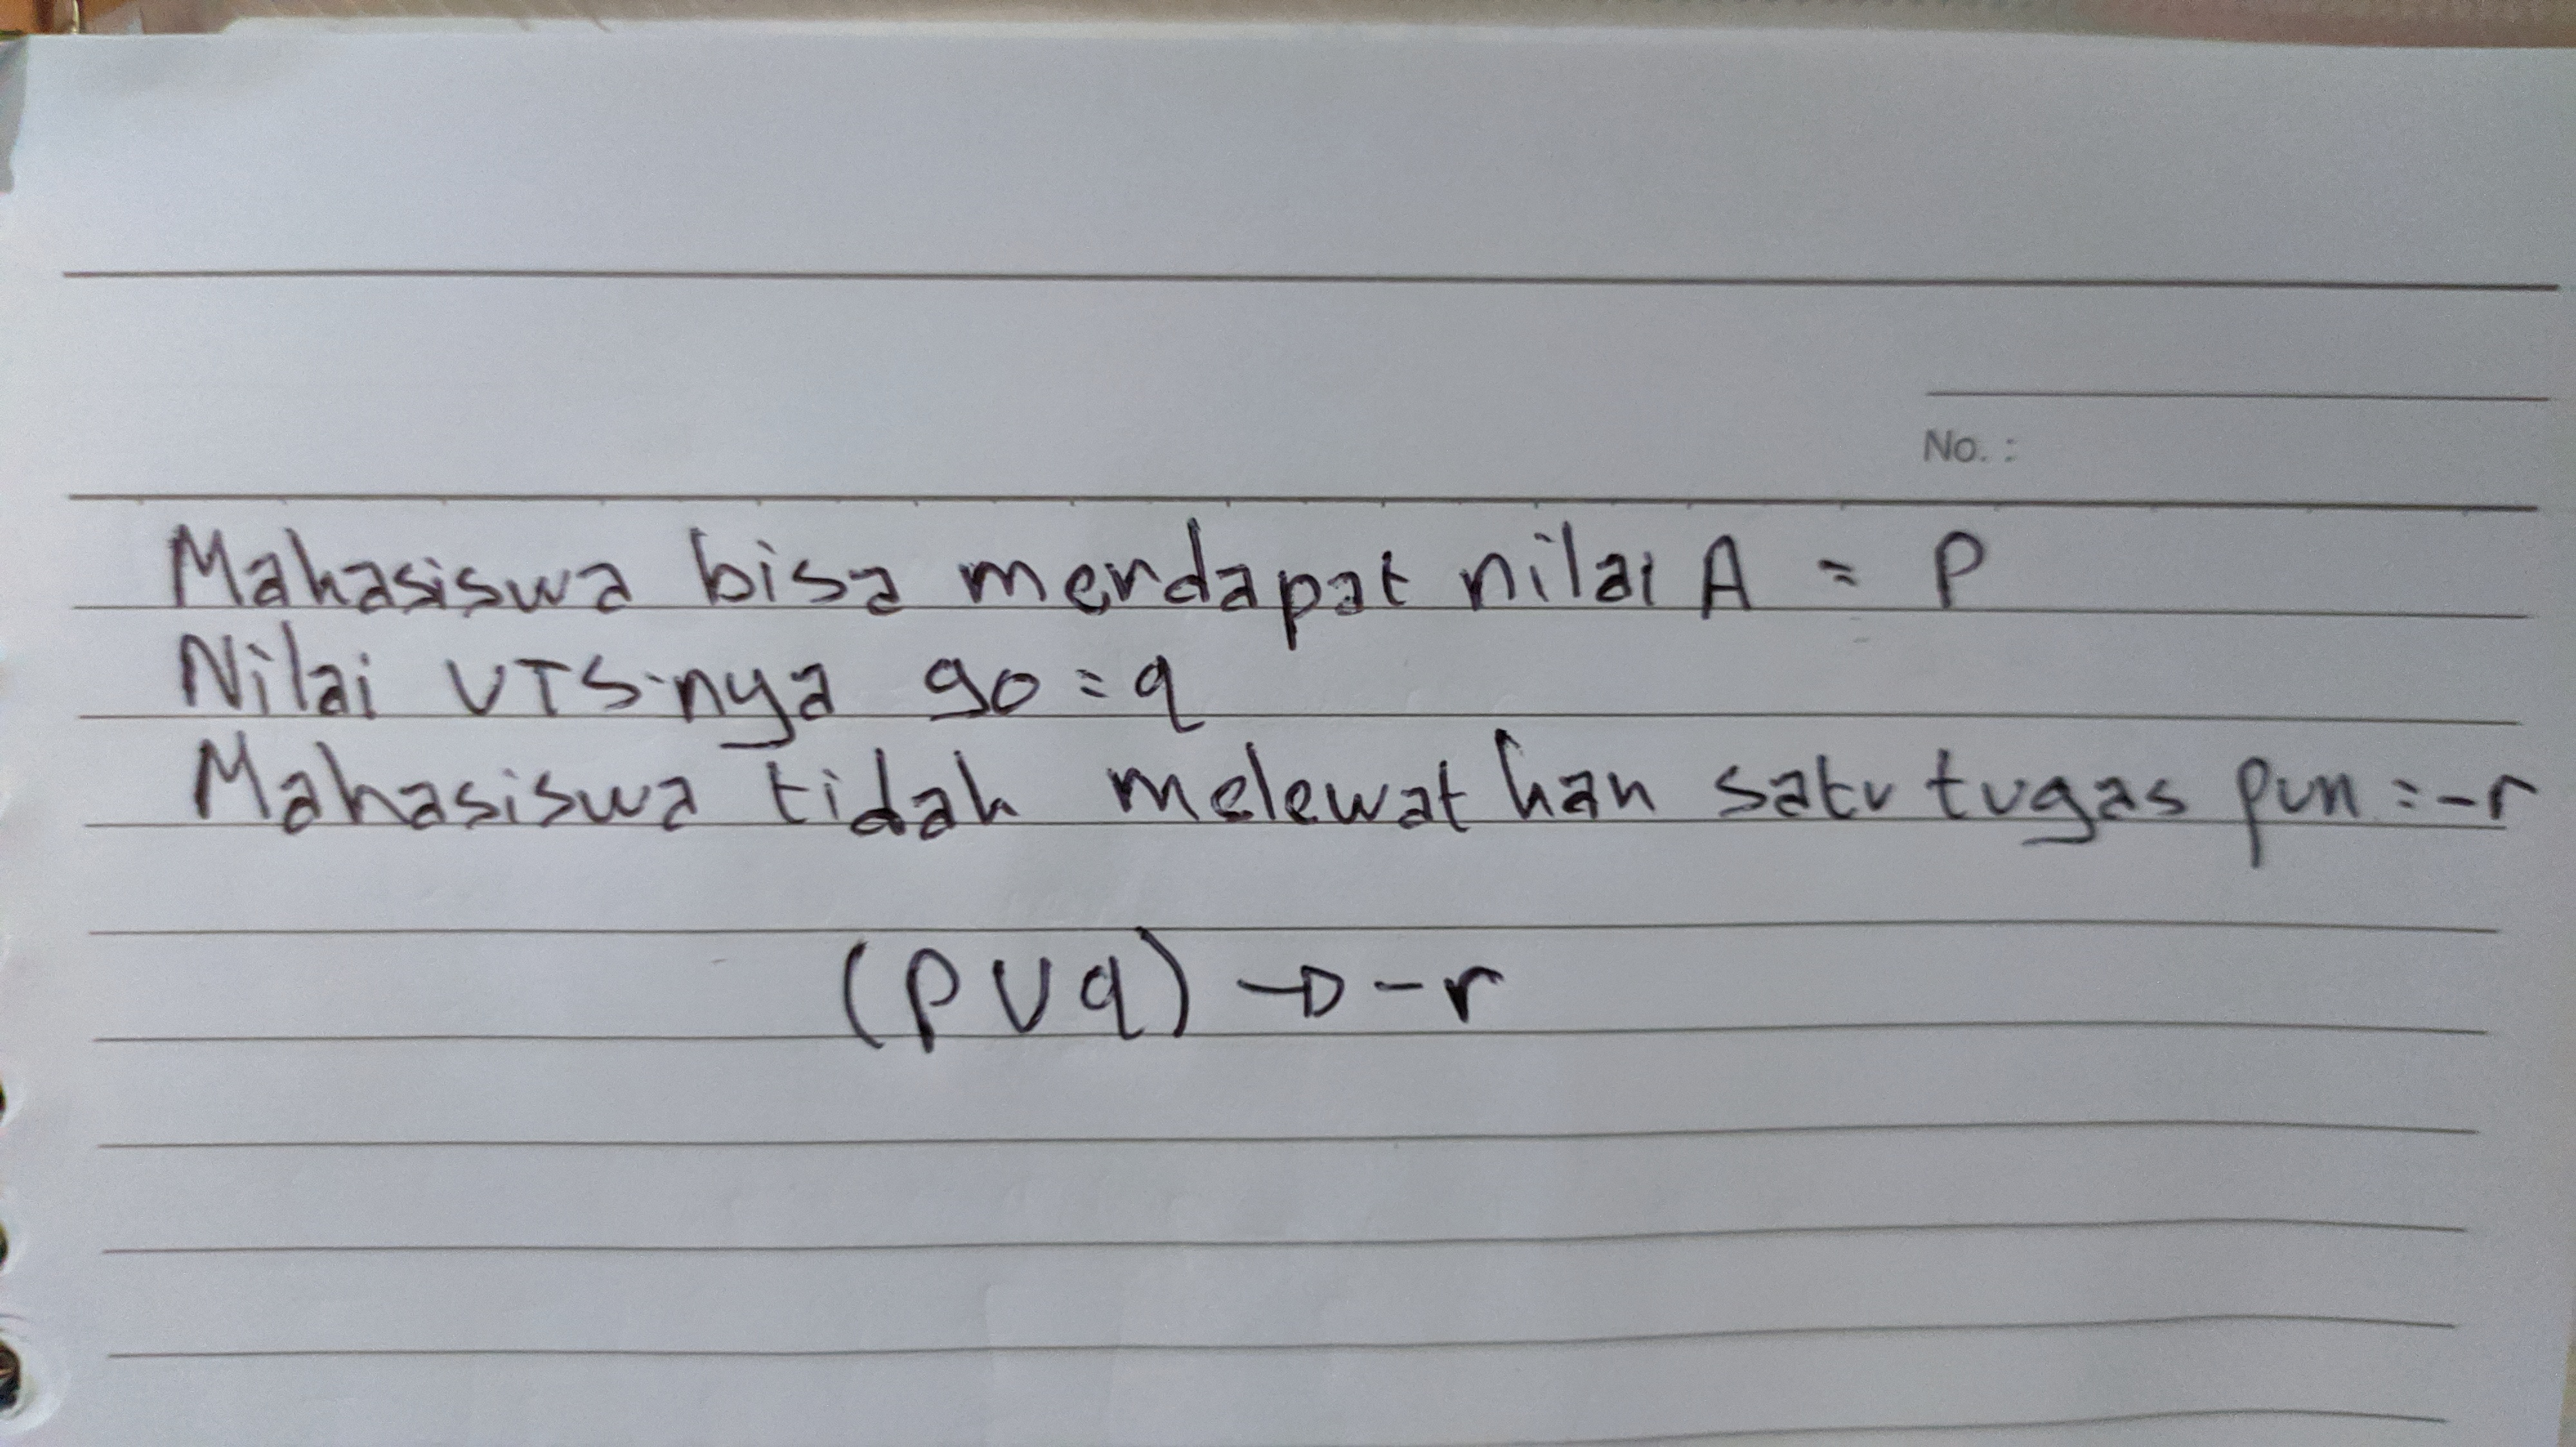 No. :
Mahasiswa bisa mendapat nilai A = p
Nilai UTS-nya 90 = q
Mahasiswa tidak melewatkan satu tugas pun = -r
(p V q) → - r